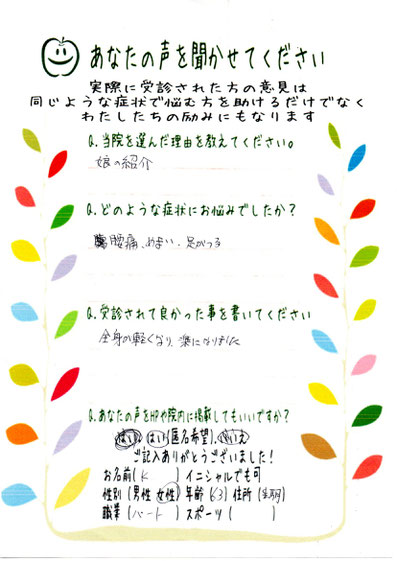 あなたの声を聞かせてください
実際に受診された方の意見は
同じような症状で悩む方を助けるだけでなく
わたしたちの励みにもなります
Q.当院を選んだ理由を教えてください。
娘の紹介
Q.どのような症状にお悩みでしたか?
腰痛、めまい、足がつる
Q.受診されて良かった事を書いてください
全身の軽くなり、楽になりました
Q.あなたの声をHPや院内に掲載してもいいですか?
はい はい(匿名希望)、いいえ
ご記入ありがとうございました!
お名前(K )イニシャルでも可
性別(男性 女性)年齢(63)住所( )
職業(パート )スポーツ( )